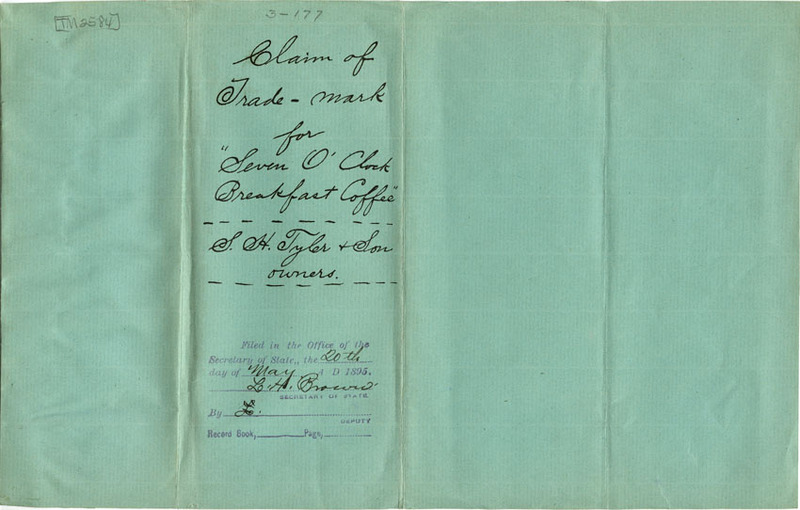 [TM2584]
3-177
Claim of
Trade-mark
for
"Seven O' Clock
Breakfast Coffee"
S. H. Tyler & Son
owners.
Filed in the Office of the
Secretary of State, the 20th
day of May A D 1895.
L. H. Brown
SECRETARY OF STATE
By
DEPUTY
Record Book, Page,